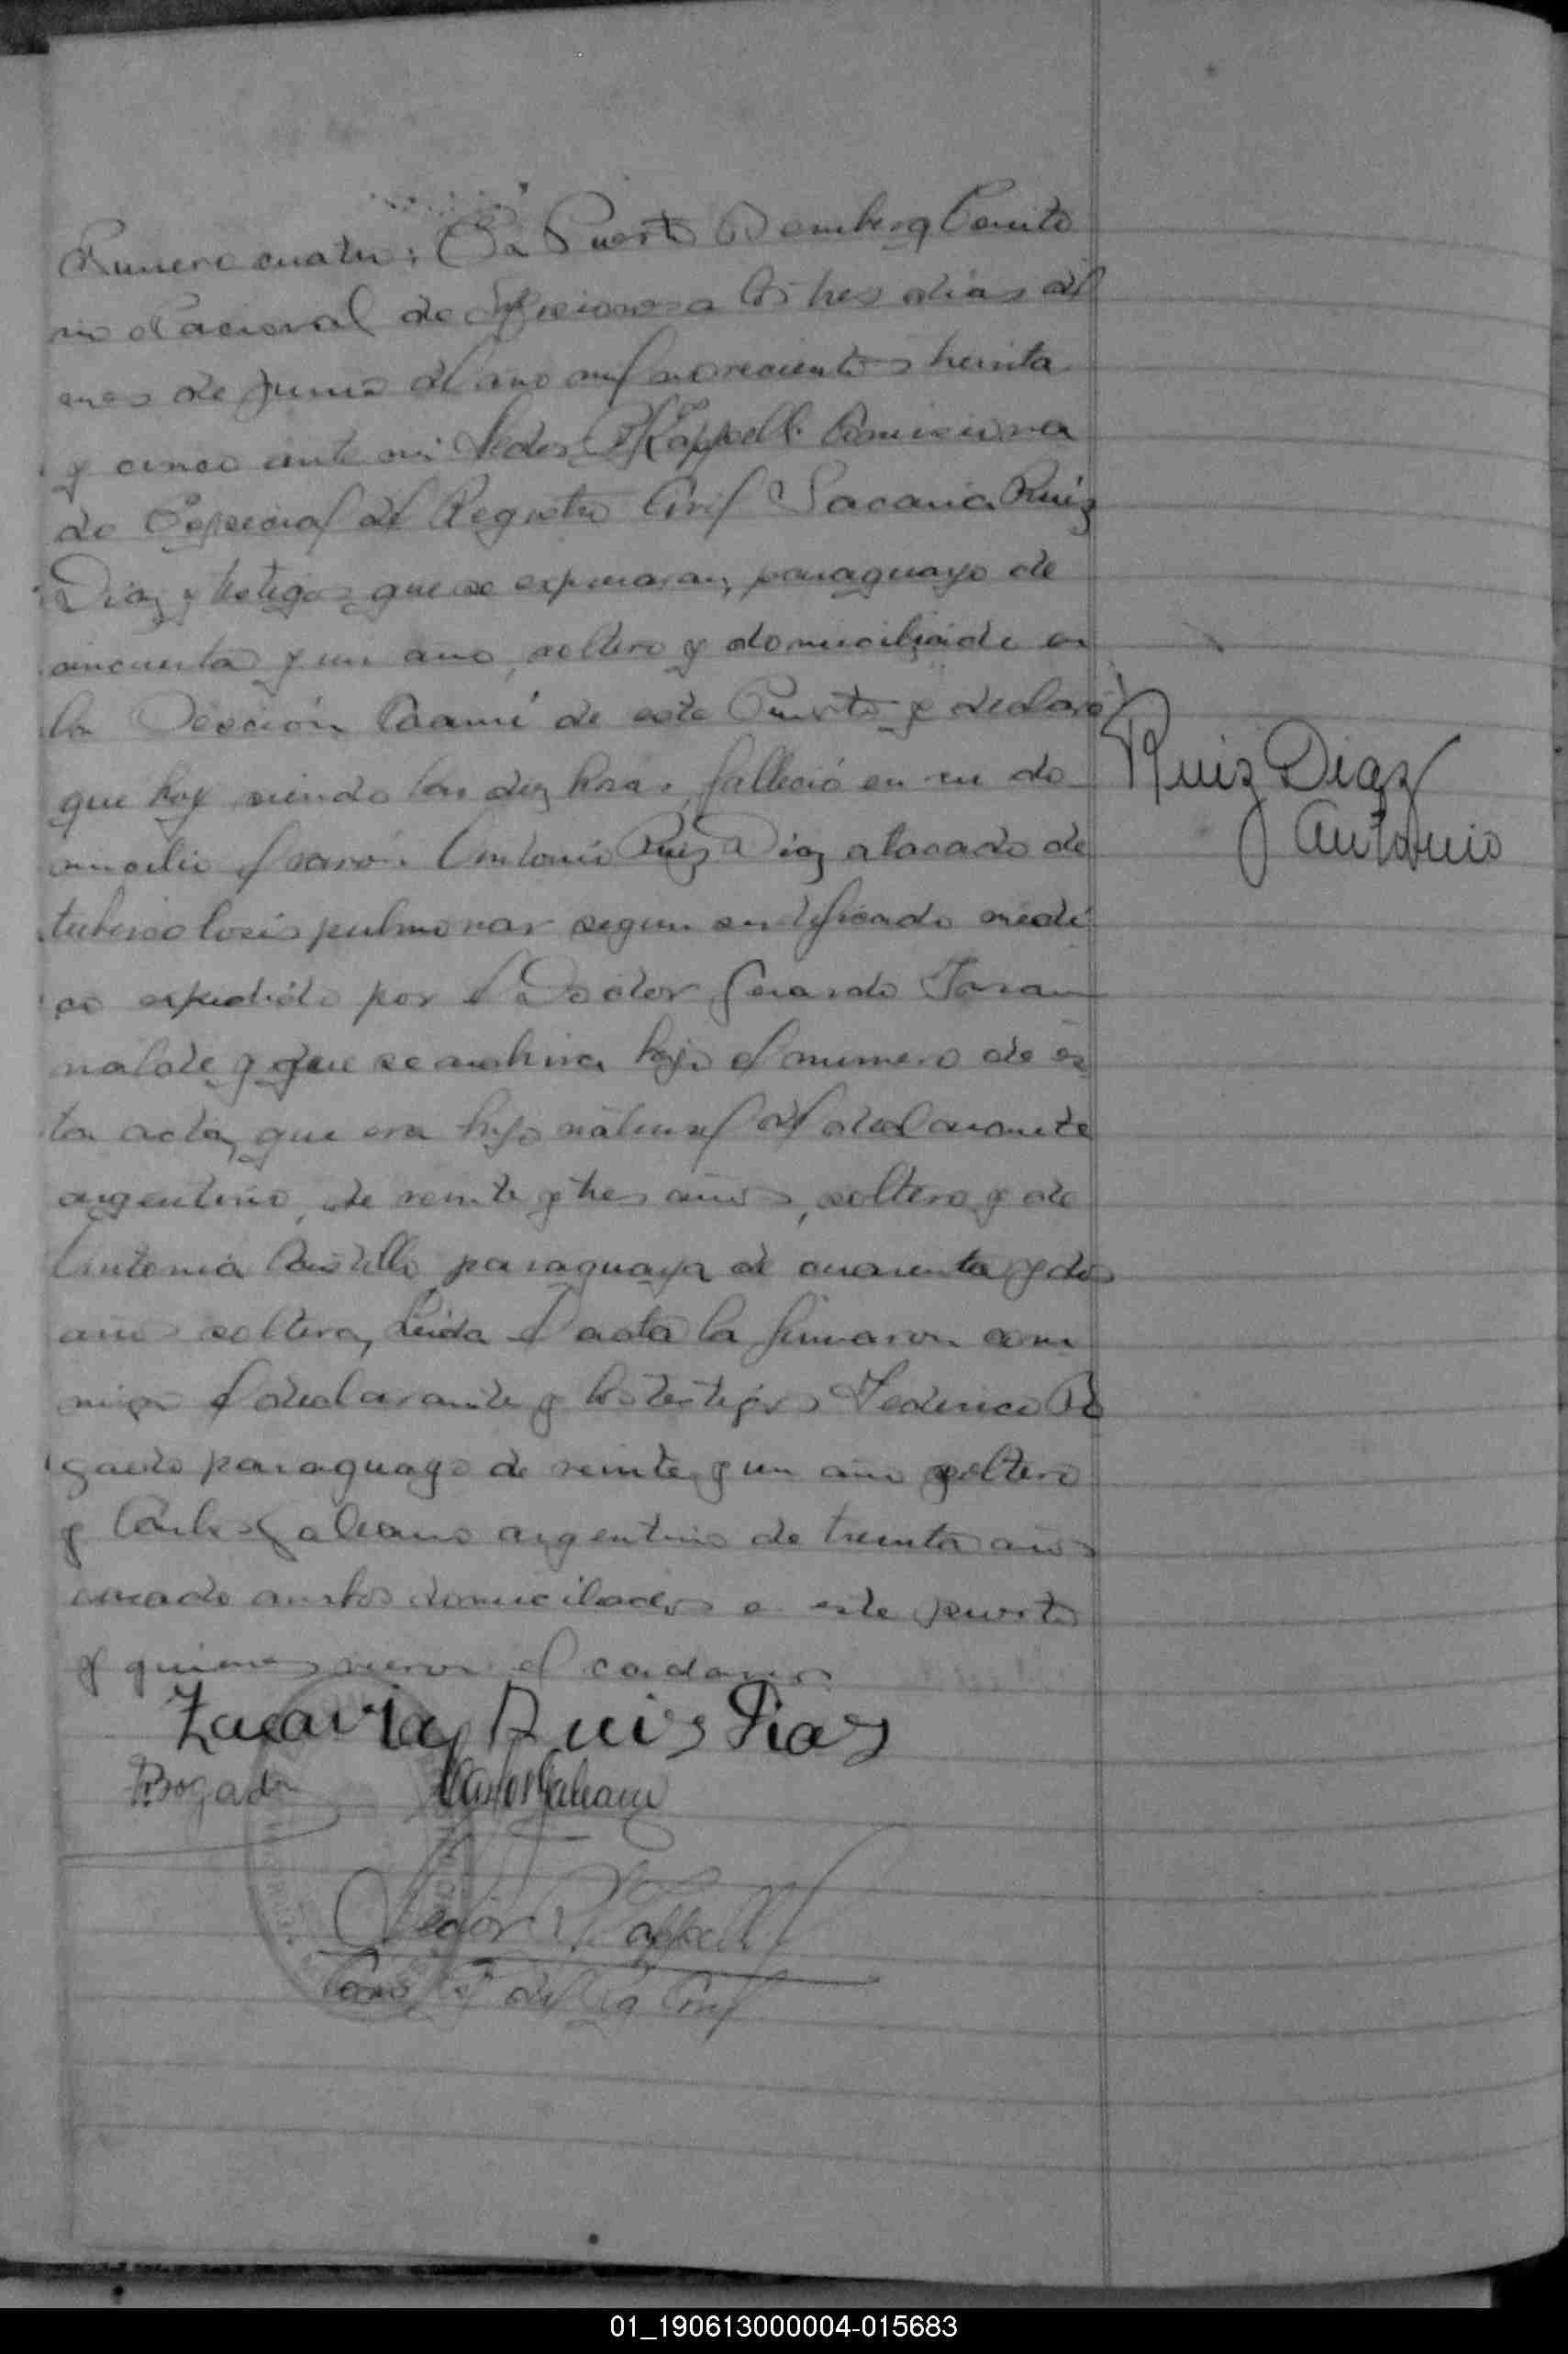 Numero cuatro: En Puerto Bemberg Territo
rio Nacional de Misiones a los tres dias del
mes de Junio del año mil novecientos treinta
y cinco ante mi Kappell Comisiona
do Especial del Registro Civil Sacaria Ruiz
Diaz y testigos que se expresaran, paraguayo de
cincuenta y un año, soltero y domiciliado en
la Sección de este Puerto y declaró
que hoy siendo las diez horas, falleció en su do
micilio el varón Antonio Ruiz Diaz atacado de
tuberculosis pulmonar segun certificado medi
co expedido por el Doctor Gerardo
y que se archiva bajo el numero de es
ta acta, que era hijo natural del declarante
argentino, de veinte y tres años, soltero y de
Antonia Castillo paraguaya de cuarenta y dos
años soltera, Leida el acta la firmaron con
migo el declarante y los testigos Federico Bo
gado paraguayo de veinte y un año soltero
y Carlos Galeano argentino de treinta años
casado ambos domiciliados en este puerto
y quienes vieron el cadaver
Ruiz Diaz
Antonio
Zacaria Ruis Dias
Bogado Carlos Galeano
Kappell